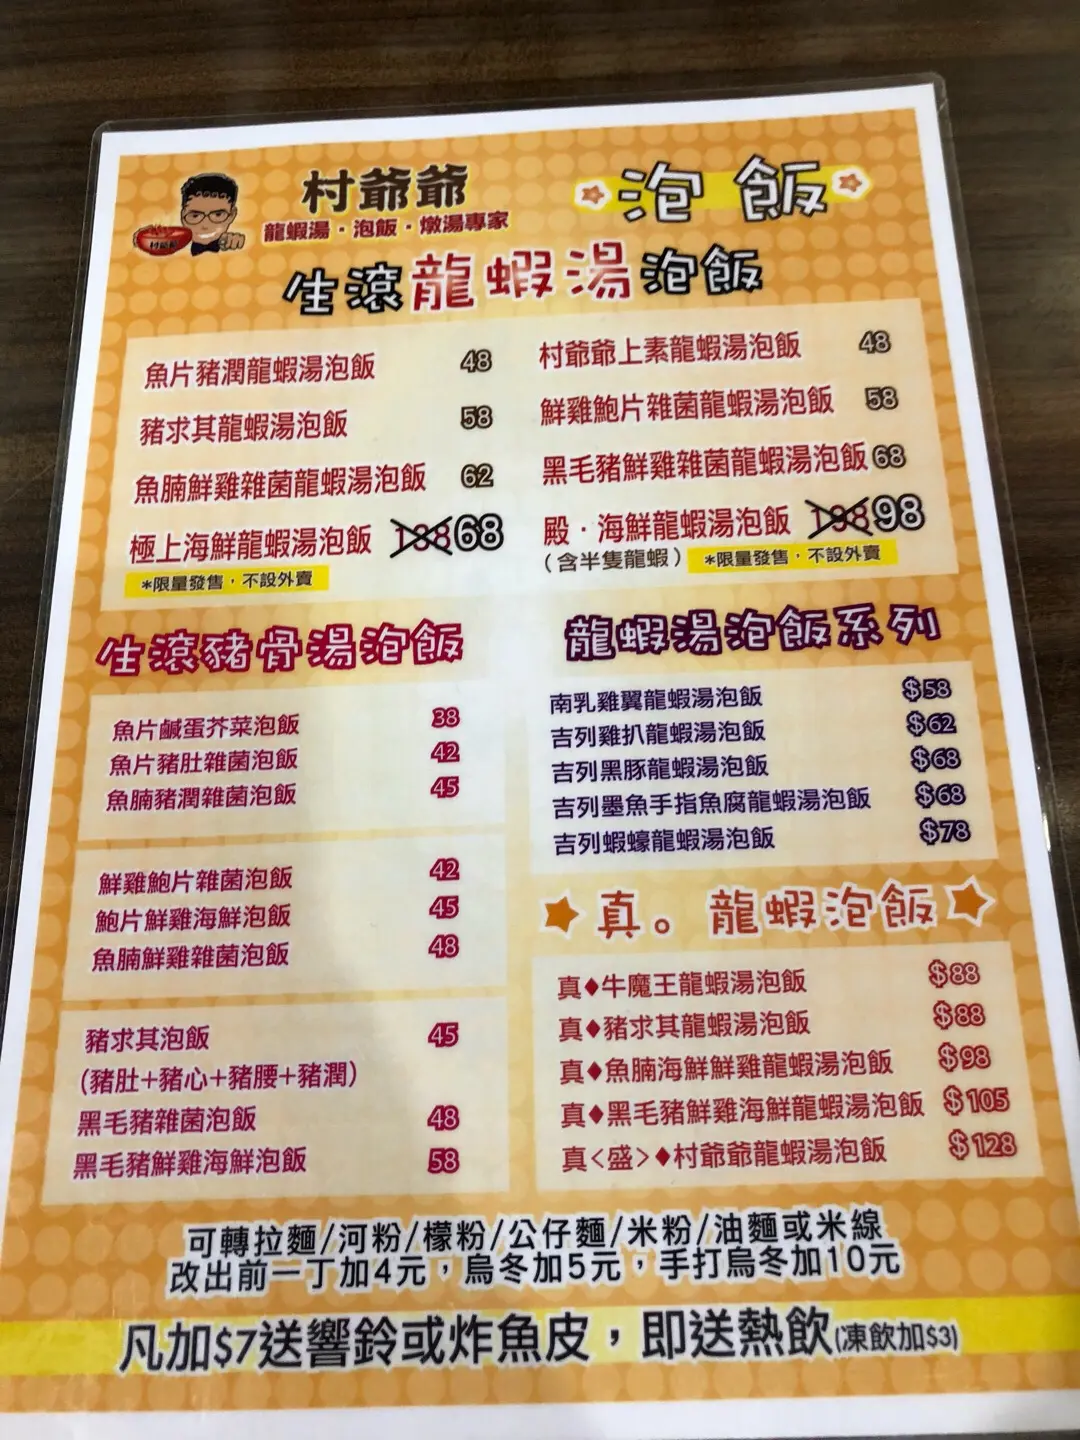 村爺爺
龍蝦湯・泡飯・燉湯專家
泡飯
生滾龍蝦湯泡飯
魚片豬潤龍蝦湯泡飯 48
豬求其龍蝦湯泡飯 58
魚腩鮮雞雜菌龍蝦湯泡飯 62
極上海鮮龍蝦湯泡飯 138 68
*限量發售，不設外賣
村爺爺上素龍蝦湯泡飯 48
鮮雞鮑片雜菌龍蝦湯泡飯 58
黑毛豬鮮雞雜菌龍蝦湯泡飯 68
殿・海鮮龍蝦湯泡飯 198 98
(含半隻龍蝦) *限量發售，不設外賣
生滾豬骨湯泡飯
魚片鹹蛋芥菜泡飯 38
魚片豬肚雜菌泡飯 42
魚腩豬潤雜菌泡飯 45
鮮雞鮑片雜菌泡飯 42
鮑片鮮雞海鮮泡飯 45
魚腩鮮雞雜菌泡飯 48
豬求其泡飯 45
(豬肚+豬心+豬腰+豬潤)
黑毛豬雜菌泡飯 48
黑毛豬鮮雞海鮮泡飯 58
龍蝦湯泡飯系列
南乳雞翼龍蝦湯泡飯 $58
吉列雞扒龍蝦湯泡飯 $62
吉列黑豚龍蝦湯泡飯 $68
吉列墨魚手指魚腐龍蝦湯泡飯 $68
吉列蝦蠔龍蝦湯泡飯 $78
真。龍蝦泡飯
真♦牛魔王龍蝦湯泡飯 $88
真♦豬求其龍蝦湯泡飯 $88
真♦魚腩海鮮鮮雞龍蝦湯泡飯 $98
真♦黑毛豬鮮雞海鮮龍蝦湯泡飯 $105
真<盛>♦村爺爺龍蝦湯泡飯 $128
可轉拉麵/河粉/檬粉/公仔麵/米粉/油麵或米線
改出前一丁加4元，烏冬加5元，手打烏冬加10元
凡加$7送響鈴或炸魚皮，即送熱飲(凍飲加$3)